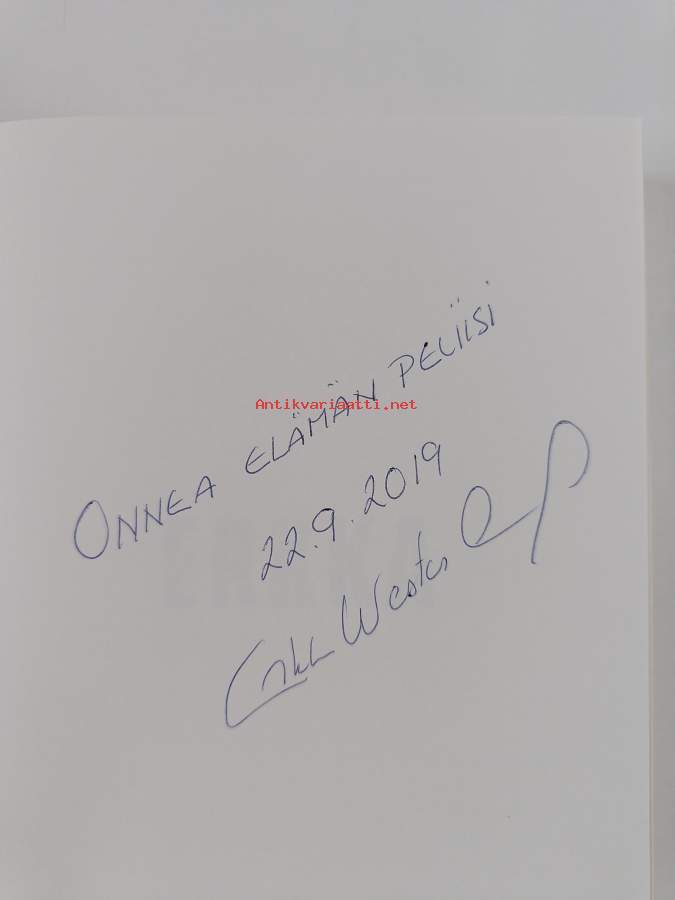 ONNEA ELÄMÄN PELIISI
Antikvariaatti.net
22.9.2019
ERKKA